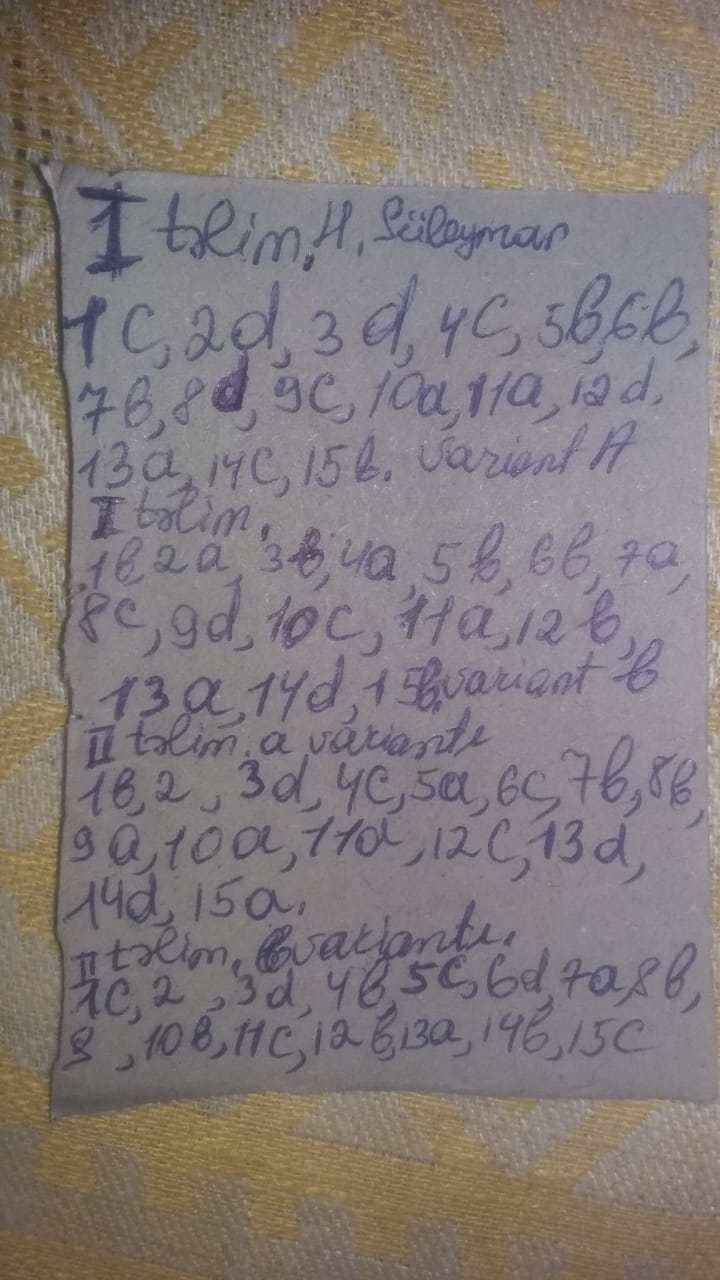 I təlim, H. Süleyman
1c, 2d, 3d, 4c, 5b, 6b,
7b, 8d, 9c, 10a, 11a, 12d.
13a, 14c, 15b. Variant A
I təlim.
1b 2a, 3b, 4a, 5b, 6b, 7a,
8c, 9d, 10c, 11a, 12b,
13a, 14d, 15b, variant b
II təlim. a variantı
1b, 2 , 3d, 4c, 5a, 6c, 7b, 8b,
9a, 10a, 11d, 12c, 13d,
14d, 15a.
II təlim. b variantı.
1c, 2 , 3d, 4b, 5c, 6d, 7a, 8b,
9 , 10b, 11c, 12b, 13a, 14b, 15c